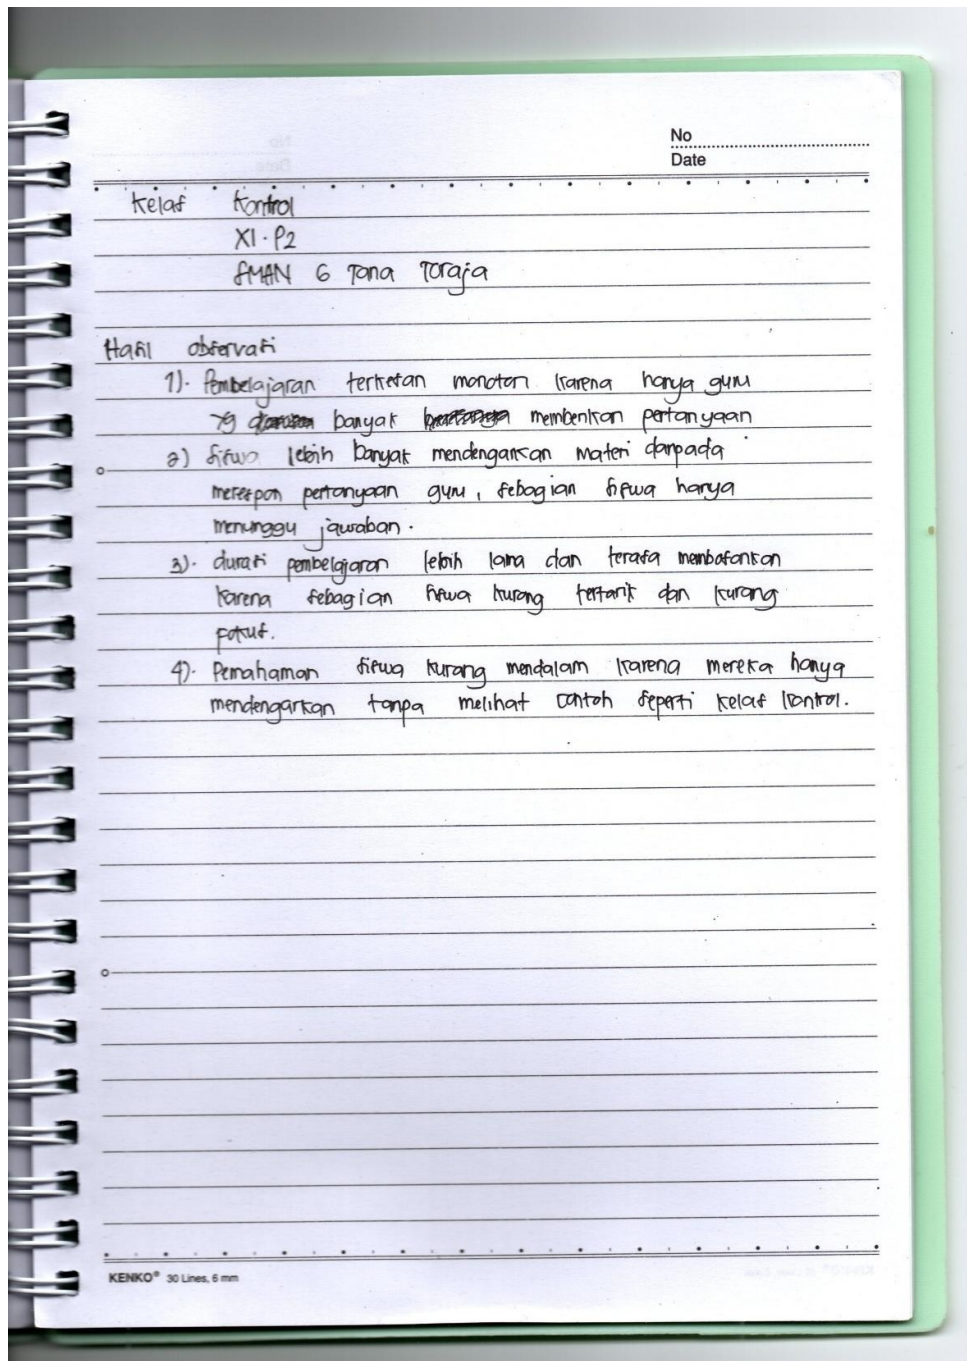 No
Date
Kelas Kontrol
XI.P2
SMAN 6 Tana Toraja
Hasil observasi
1). Pembelajaran terkesan monoton karena hanya guru
yg banyak memberikan pertanyaan
2) siswa lebih banyak mendengarkan materi daripada
merespon pertanyaan guru, sebagian siswa hanya
menunggu jawaban.
3). durasi pembelajaran lebih lama dan terasa membosankan
karena sebagian siswa kurang tertarik dan kurang
fokus.
4). Pemahaman siswa kurang mendalam karena mereka hanya
mendengarkan tanpa melihat contoh seperti kelas kontrol.
KENKO® 30 Lines, 6 mm